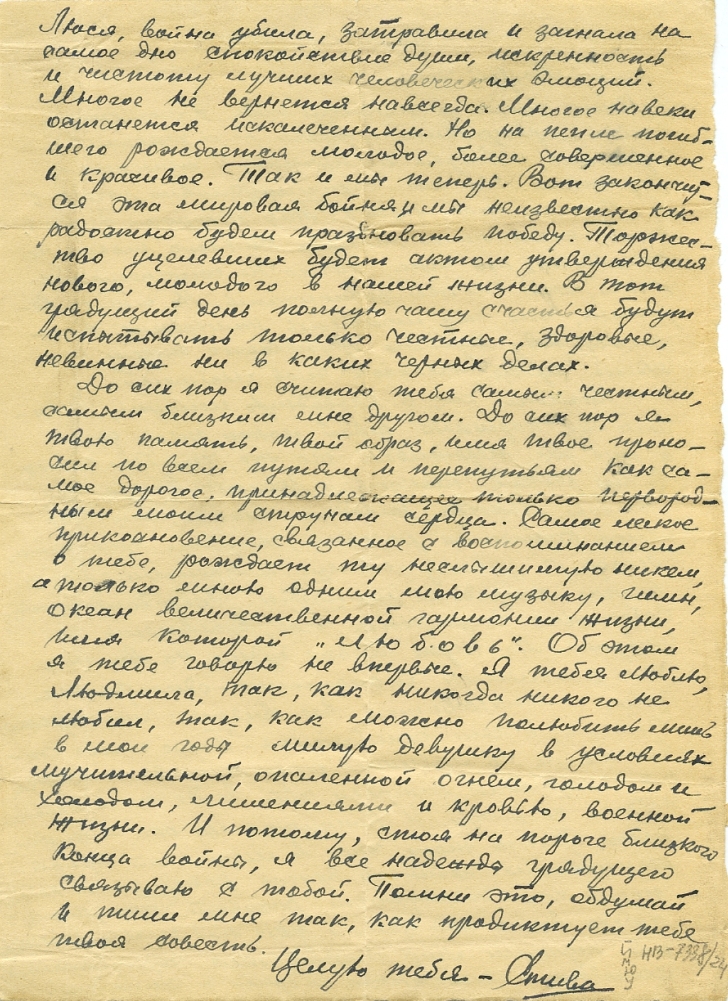 Люся, война убила, затравила и загнала на
самое дно спокойствие души, искренность
и чистоту лучших человеческих эмоций.
Многое не вернется навсегда. Многое навеки
останется искалеченным. Но на пепле погиб-
шего рождается молодое, более совершенное
и красивое. Так и мы теперь. Вот закончит-
ся эта мировая бойня и мы неизвестно как
радостно будем праздновать победу. Торжес-
тво уцелевших будет актом утверждения
нового, молодого в нашей жизни. В тот
грядущий день полную чашу счастья будут
испытывать только честные, здоровые,
невинные ни в каких черных делах.
До сих пор я считаю тебя самым честным,
самым близким мне другом. До сих пор я
твою память, твой образ, имя твое проно-
сил по всем путям и перепутьям как са-
мое дорогое, принадлежащее только первород-
ным моим струнам сердца. Самое легкое
прикосновение, связанное с воспоминанием
о тебе, рождает ту неслышимую никем,
а только мною одним мою музыку, гимн,
океан величественной гармонии жизни,
имя которой „Любовь". Об этом
я тебе говорю не впервые. Я тебя люблю,
Людмила, так, как никогда никого не
любил, так, как можно полюбить лишь
в мои годы милую девушку в условиях
мучительной, опаленной огнем, голодом и
холодом, лишениями и кровью, военной
жизни. И потому, стоя на пороге близкого
конца войны, я все надежды грядущего
связываю с тобой. Помни это, обдумай
и пиши мне так, как продиктует тебе
твоя совесть.
Целую тебя – Слива
НВ-7338/24